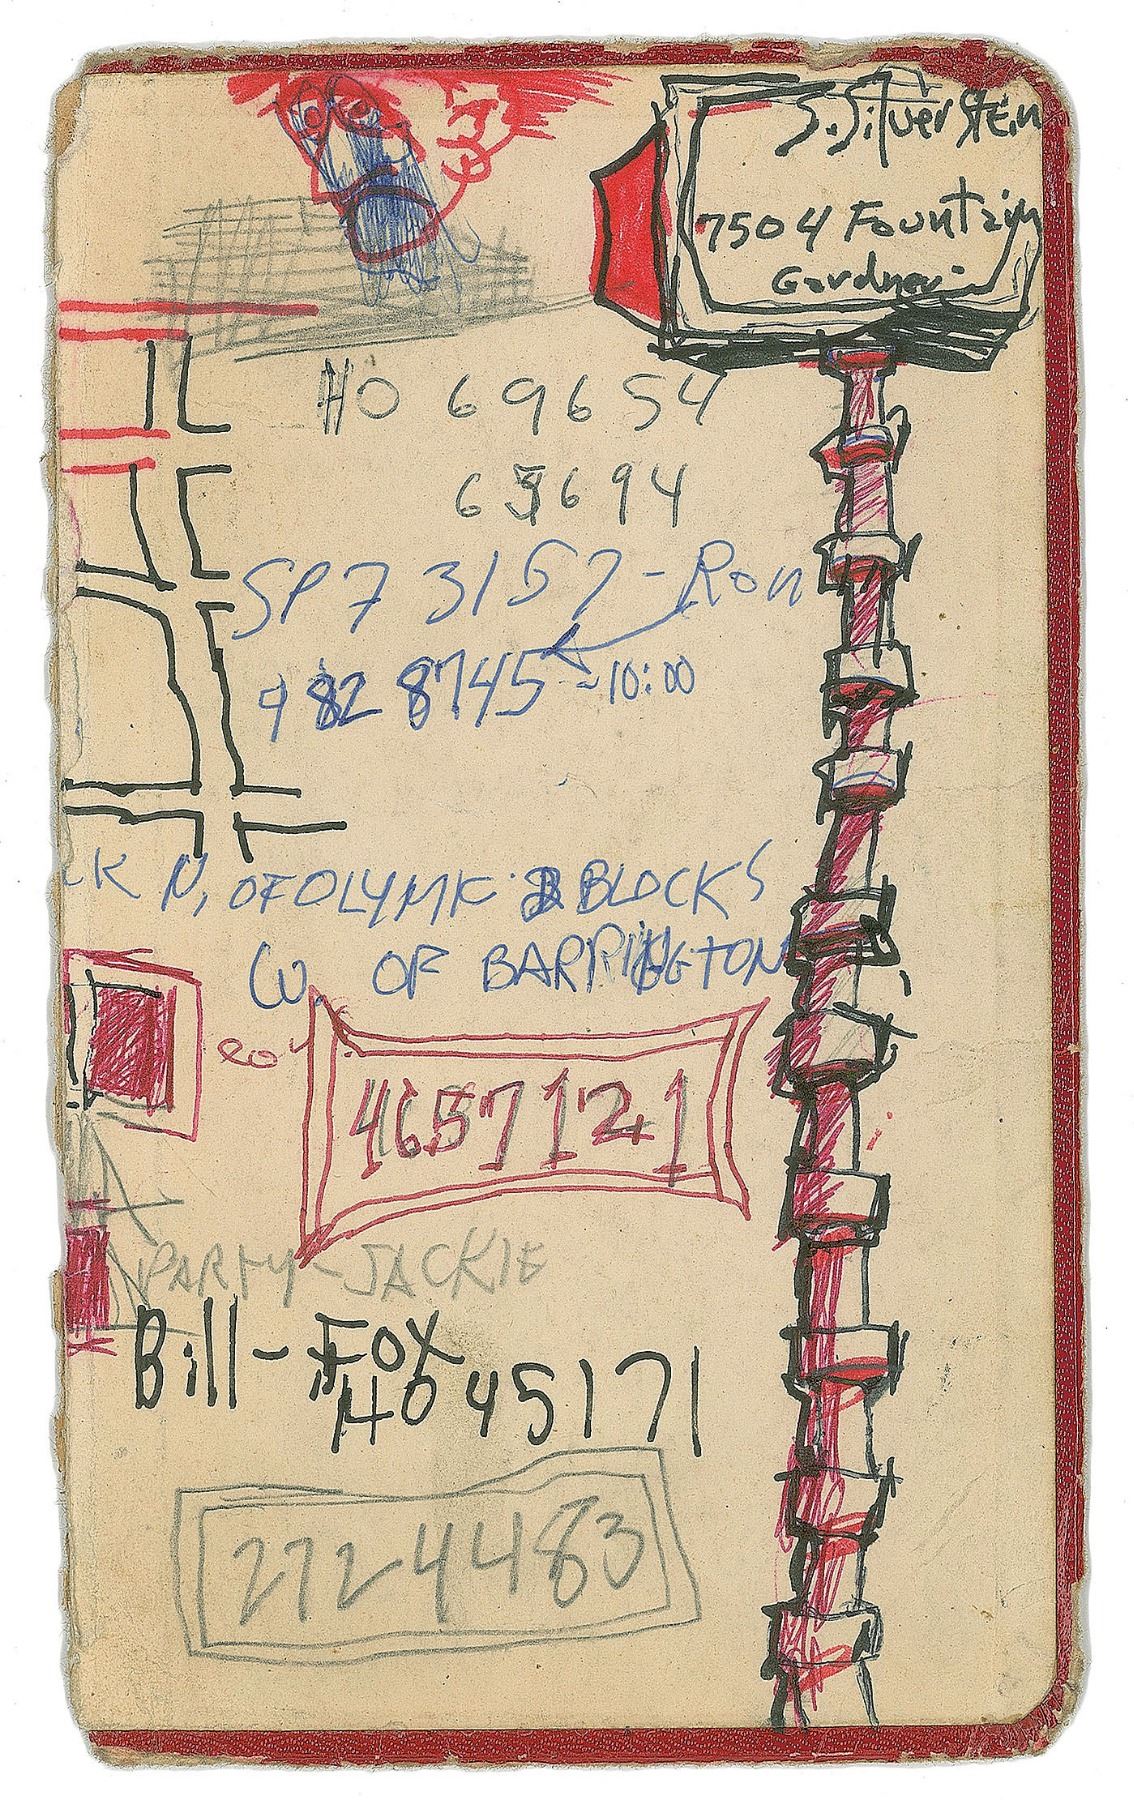 S. Silverstein
7504 Fountain
HO 69654
656 94
SP7 3157 - Ron
982 8745 - 10:00
CK N, OF OLYMPIC 2 BLOCKS
W. OF BARRINGTON
4657121
PARTY - JACKIE
Bill - Fox
HO 45171
272 4483